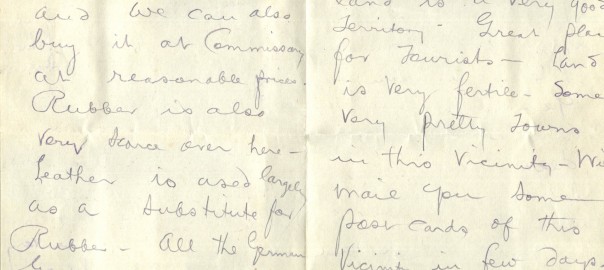 and we can also
buy it at Commissary
at reasonable prices.
Rubber is also
very scarce over here –
Leather is used largely
as a substitute for
Rubber – All the German
Land is a very good
Territory – Great place
for Tourists – Land
is very fertile – Some
very pretty Towns
in this Vicinity – Wi
mail you some
post cards of this
Vicinity in few days.